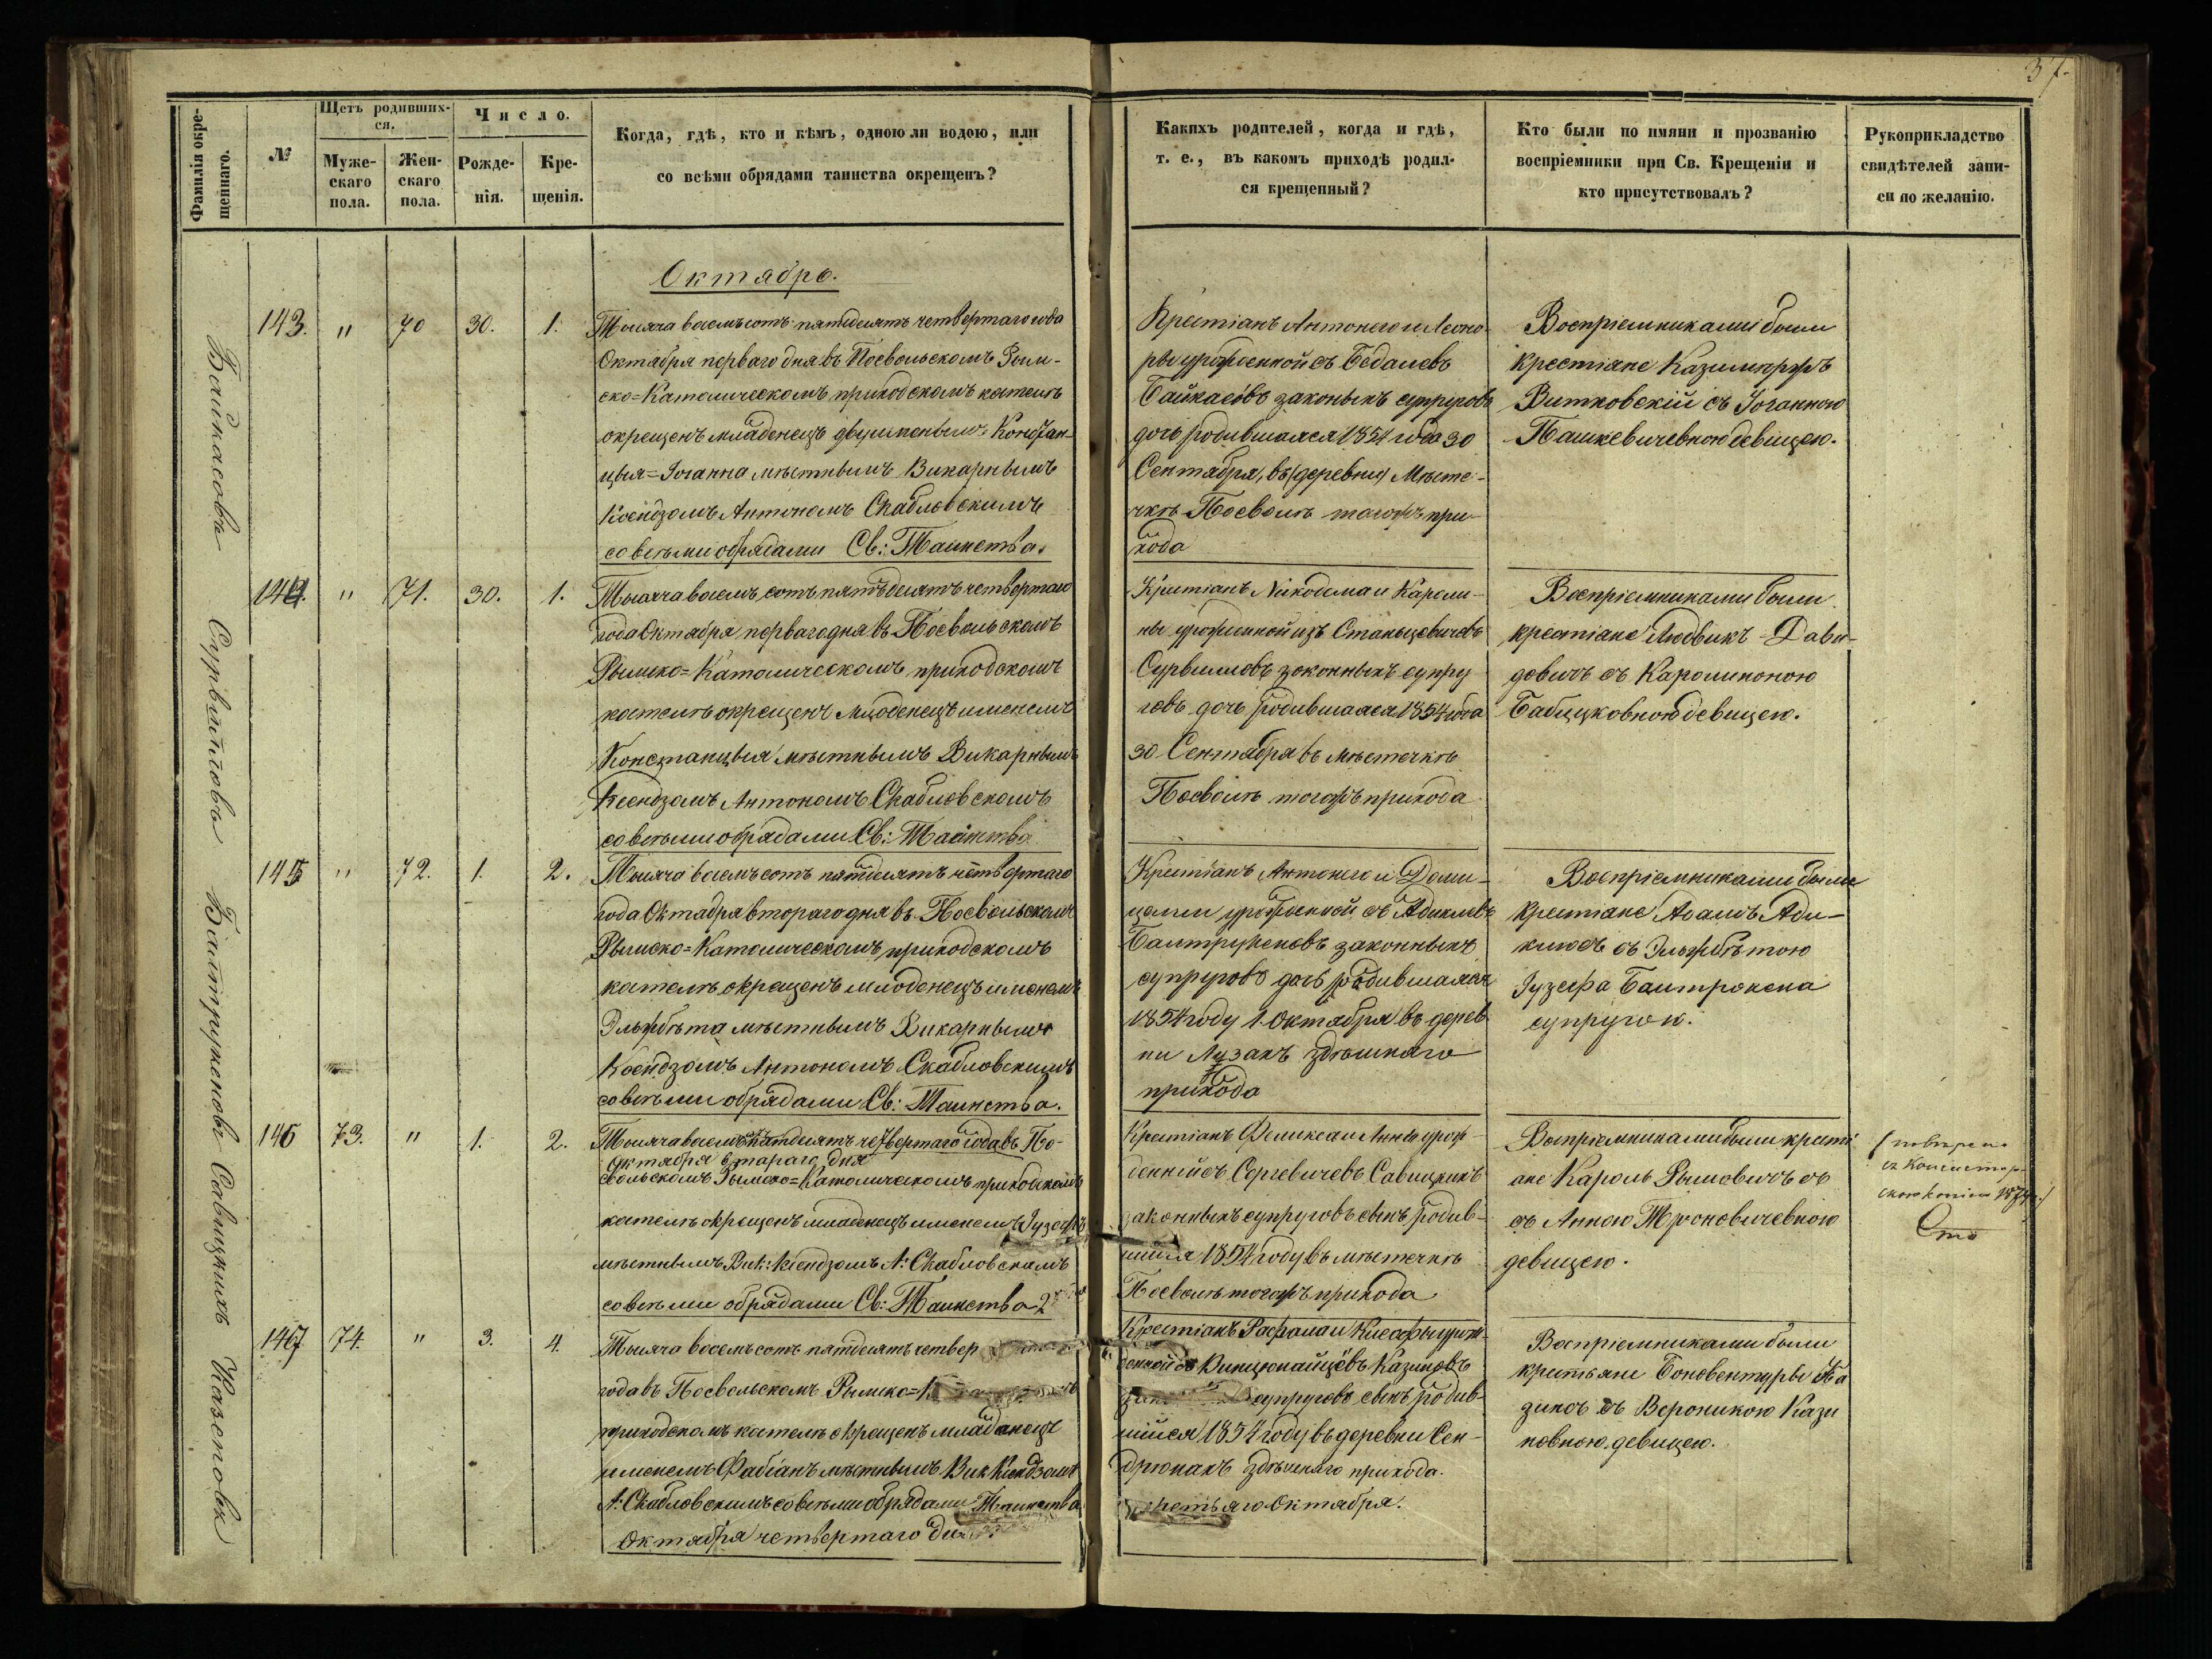 37.
Фамилія окре-
щеннаго.
№
Щетъ родивших-
ся.
Муже-
скаго
пола.
Жен-
скаго
пола.
Число.
Рожде-
нія.
Кре-
щенія.
Когда, гдѣ, кто и кѣмъ, одною ли водою, или
со всѣми обрядами таинства окрещенъ?
Какихъ родителей, когда и гдѣ,
т. е., въ какомъ приходѣ родил-
ся крещенный?
Кто были по имяни и прозванію
воспріемники при Св. Крещеніи и
кто присутствовалъ?
Рукоприкладство
свидѣтелей запи-
си по желанію.
Октябрь.
Байкасовъ
143. " 70 30. 1.
Тысяча восемъсотъ пятдесятъ четвертаго года
Октября перваго дня въ Посвольскомъ Рым-
ско=Католическомъ приходскомъ костелѣ
окрещенъ младенецъ двуименнымъ Констан-
цыя=Іоганна мѣстнымъ Викарнымъ
Ксендзомъ Антономъ Скабловскимъ
со всѣми обрядами Св: Таинства.
Крестіанъ Антонего и Леоно-
ры урожденной съ
Байкасовъ законныхъ супруговъ
дочь родившаяся 1854 года 30
Сентября, въ (деревни) Мѣсте-
чкѣ Посволѣ тогожъ при-
хода
Воспріемниками были
крестіане Казимержъ
Витковскій съ Іоганною
Пашкевичевною девицею.
Сурвилловъ
144. " 71. 30. 1.
Тысяча восемъ сотъ пятъдесятъ четвертаго
года Октября перваго дня въ Посвольскомъ
Рымско=Католическомъ приходскомъ
костелѣ окрещенъ младенецъ именемъ
Констанцыя мѣстнымъ Викарнымъ
Ксендзомъ Антономъ Скабловскомъ
со всѣми обрядами Св: Таинства
Крестіанъ Никодема и Кароли-
ны урожденной изъ Станьцевичовъ
Сурвилловъ законныхъ супру
говъ дочь родившаяся 1854 года
30 Сентября въ мѣстечкѣ
Посволѣ тогожъ прихода
Воспріемниками были
крестіане Людвикъ Дави-
довичъ съ Каролиною
Бабицковною девицею.
Балтруженовъ
145 " 72. 1. 2.
Тысяча восемъсотъ пятдесятъ четвертаго
года Октября втораго дня въ Посвольскомъ
Рымско=Католическомъ приходскомъ
костелѣ окрещенъ младенецъ именемъ
Эльжбѣта мѣстнымъ Викарнымъ
Ксендзомъ Антономъ Скабловскимъ
со всѣми обрядами Св: Таинства.
Крестіанъ Антонего и Доми-
целли урожденной съ Адикловъ
Балтруженовъ законныхъ
супруговъ дочь родившаяся
1854 году 1 Октября въ дерев
ни Лузахъ здѣшняго
прихода
Воспріемниками были
крестіане Адамъ Ади-
клисъ съ Эльжбѣтою
Іузефа Балтрокена
супругою.
Савицкихъ
146 73. " 1. 2.
Тысяча восемъсотъ пятдесятъ четвертаго года въ По-
Октября втараго дня
свольскомъ Рымско=Католическомъ приходскомъ
костелѣ окрещенъ младенецъ именемъ Іузефъ
мѣстнымъ Вик: Ксендзомъ А: Скабловскомъ
со всѣми обрядами Св: Таинства 2
Крестіанъ Феликса и Анны урож-
денной съ Сергевичовъ Савицкихъ
законныхъ супруговъ сынъ родив-
шійся 1854 году въ мѣстечкѣ
Посволѣ тогожъ прихода
Воспріемниками были крести
ане Кароль Рымовичъ съ
съ Анною Троновичевною
девицею.
Казеновъ
147 74. " 3. 4.
Тысяча восемъсотъ пятдесятъ четвер
года въ Посвольскомъ Рымско=К
приходскомъ костелѣ окрещенъ младенецъ
именемъ Фабіанъ мѣстнымъ Вик Ксендзомъ
А: Скабловскимъ со всѣми обрядами Таинства
Октября четвертаго дня.
Крестіанъ Рафала и урож-
денной съ Казиновъ
супруговъ сынъ родив-
шійся 1854 году въ деревни Сен-
дрюнахъ здѣшняго прихода.
третьяго Октября.
Воспріемниками были
крестьяни Боновентуры Ка
зинъ съ Вероникою Кази
новною девицею.